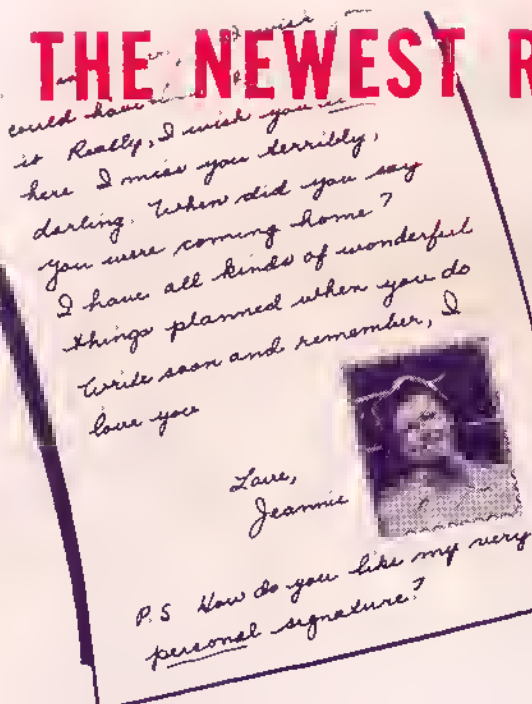 THE NEWEST R
wish
could have
it Really, I wish you
here I miss you terribly,
darling. When did you say
you were coming home?
I have all kinds of wonderful
things planned when you do
Write soon and remember, I
love you
Love,
Jeannie
P.S How do you like my very
personal signature?